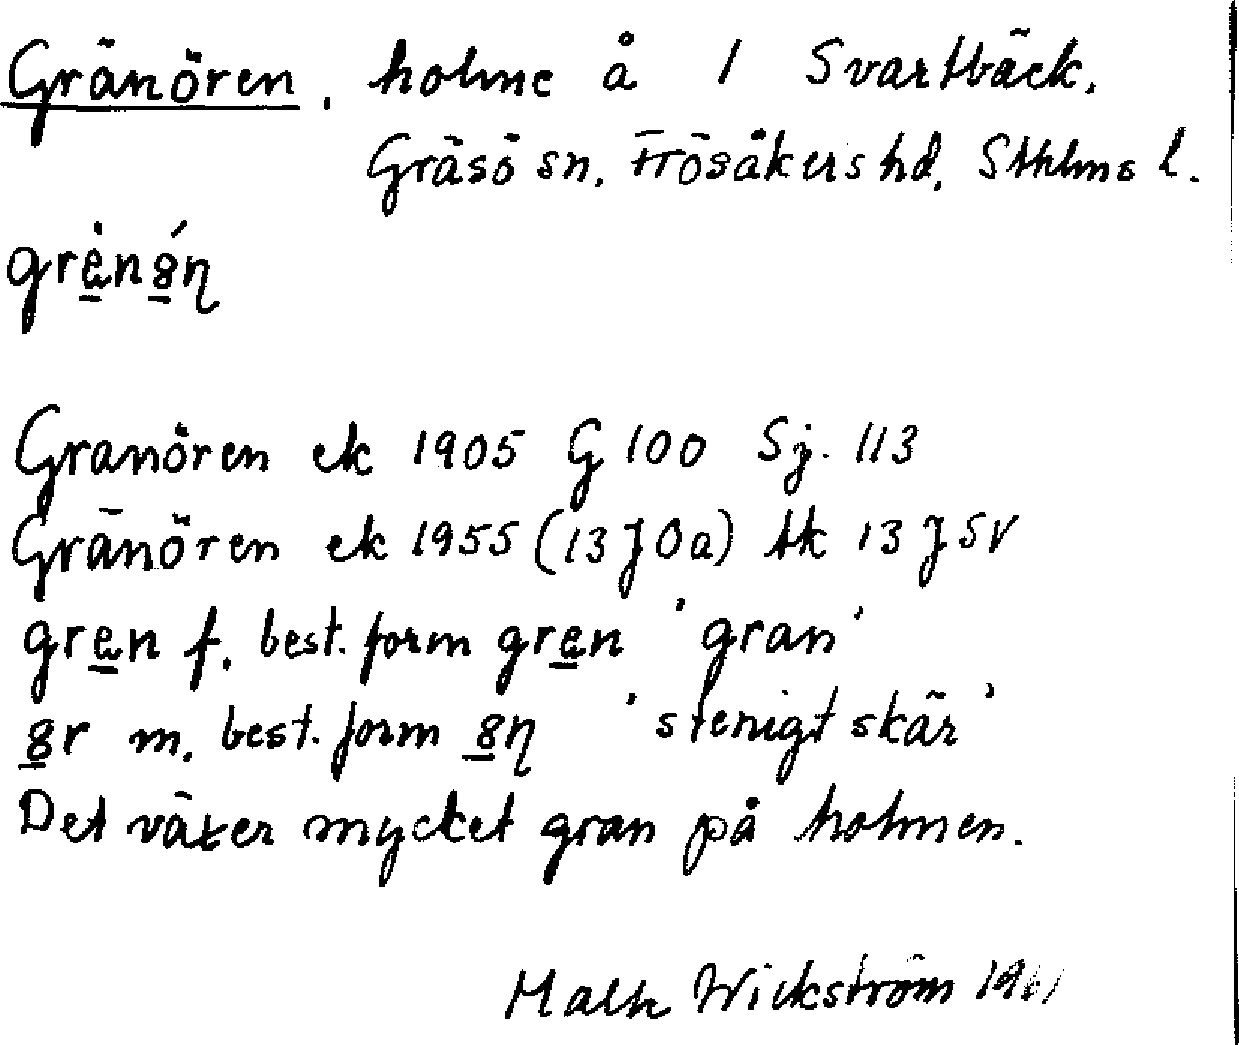 Gränören, holme å 1 Svartbäck,
Gräsö sn, Frösåkers hd, Sthlms l.
grȧ̲nȣ̲́ɳ
Granören ek 1905 G 100 Sj. 113
Gränören ek 1955 (13 J 0a) tk 13 J SV
gra̲n f. best. form gra̲n 'gran'
ȣ̲r m. best. form ȣ̲ɳ 'stenigt skär'
Det växer mycket gran på holmen.
Wickström